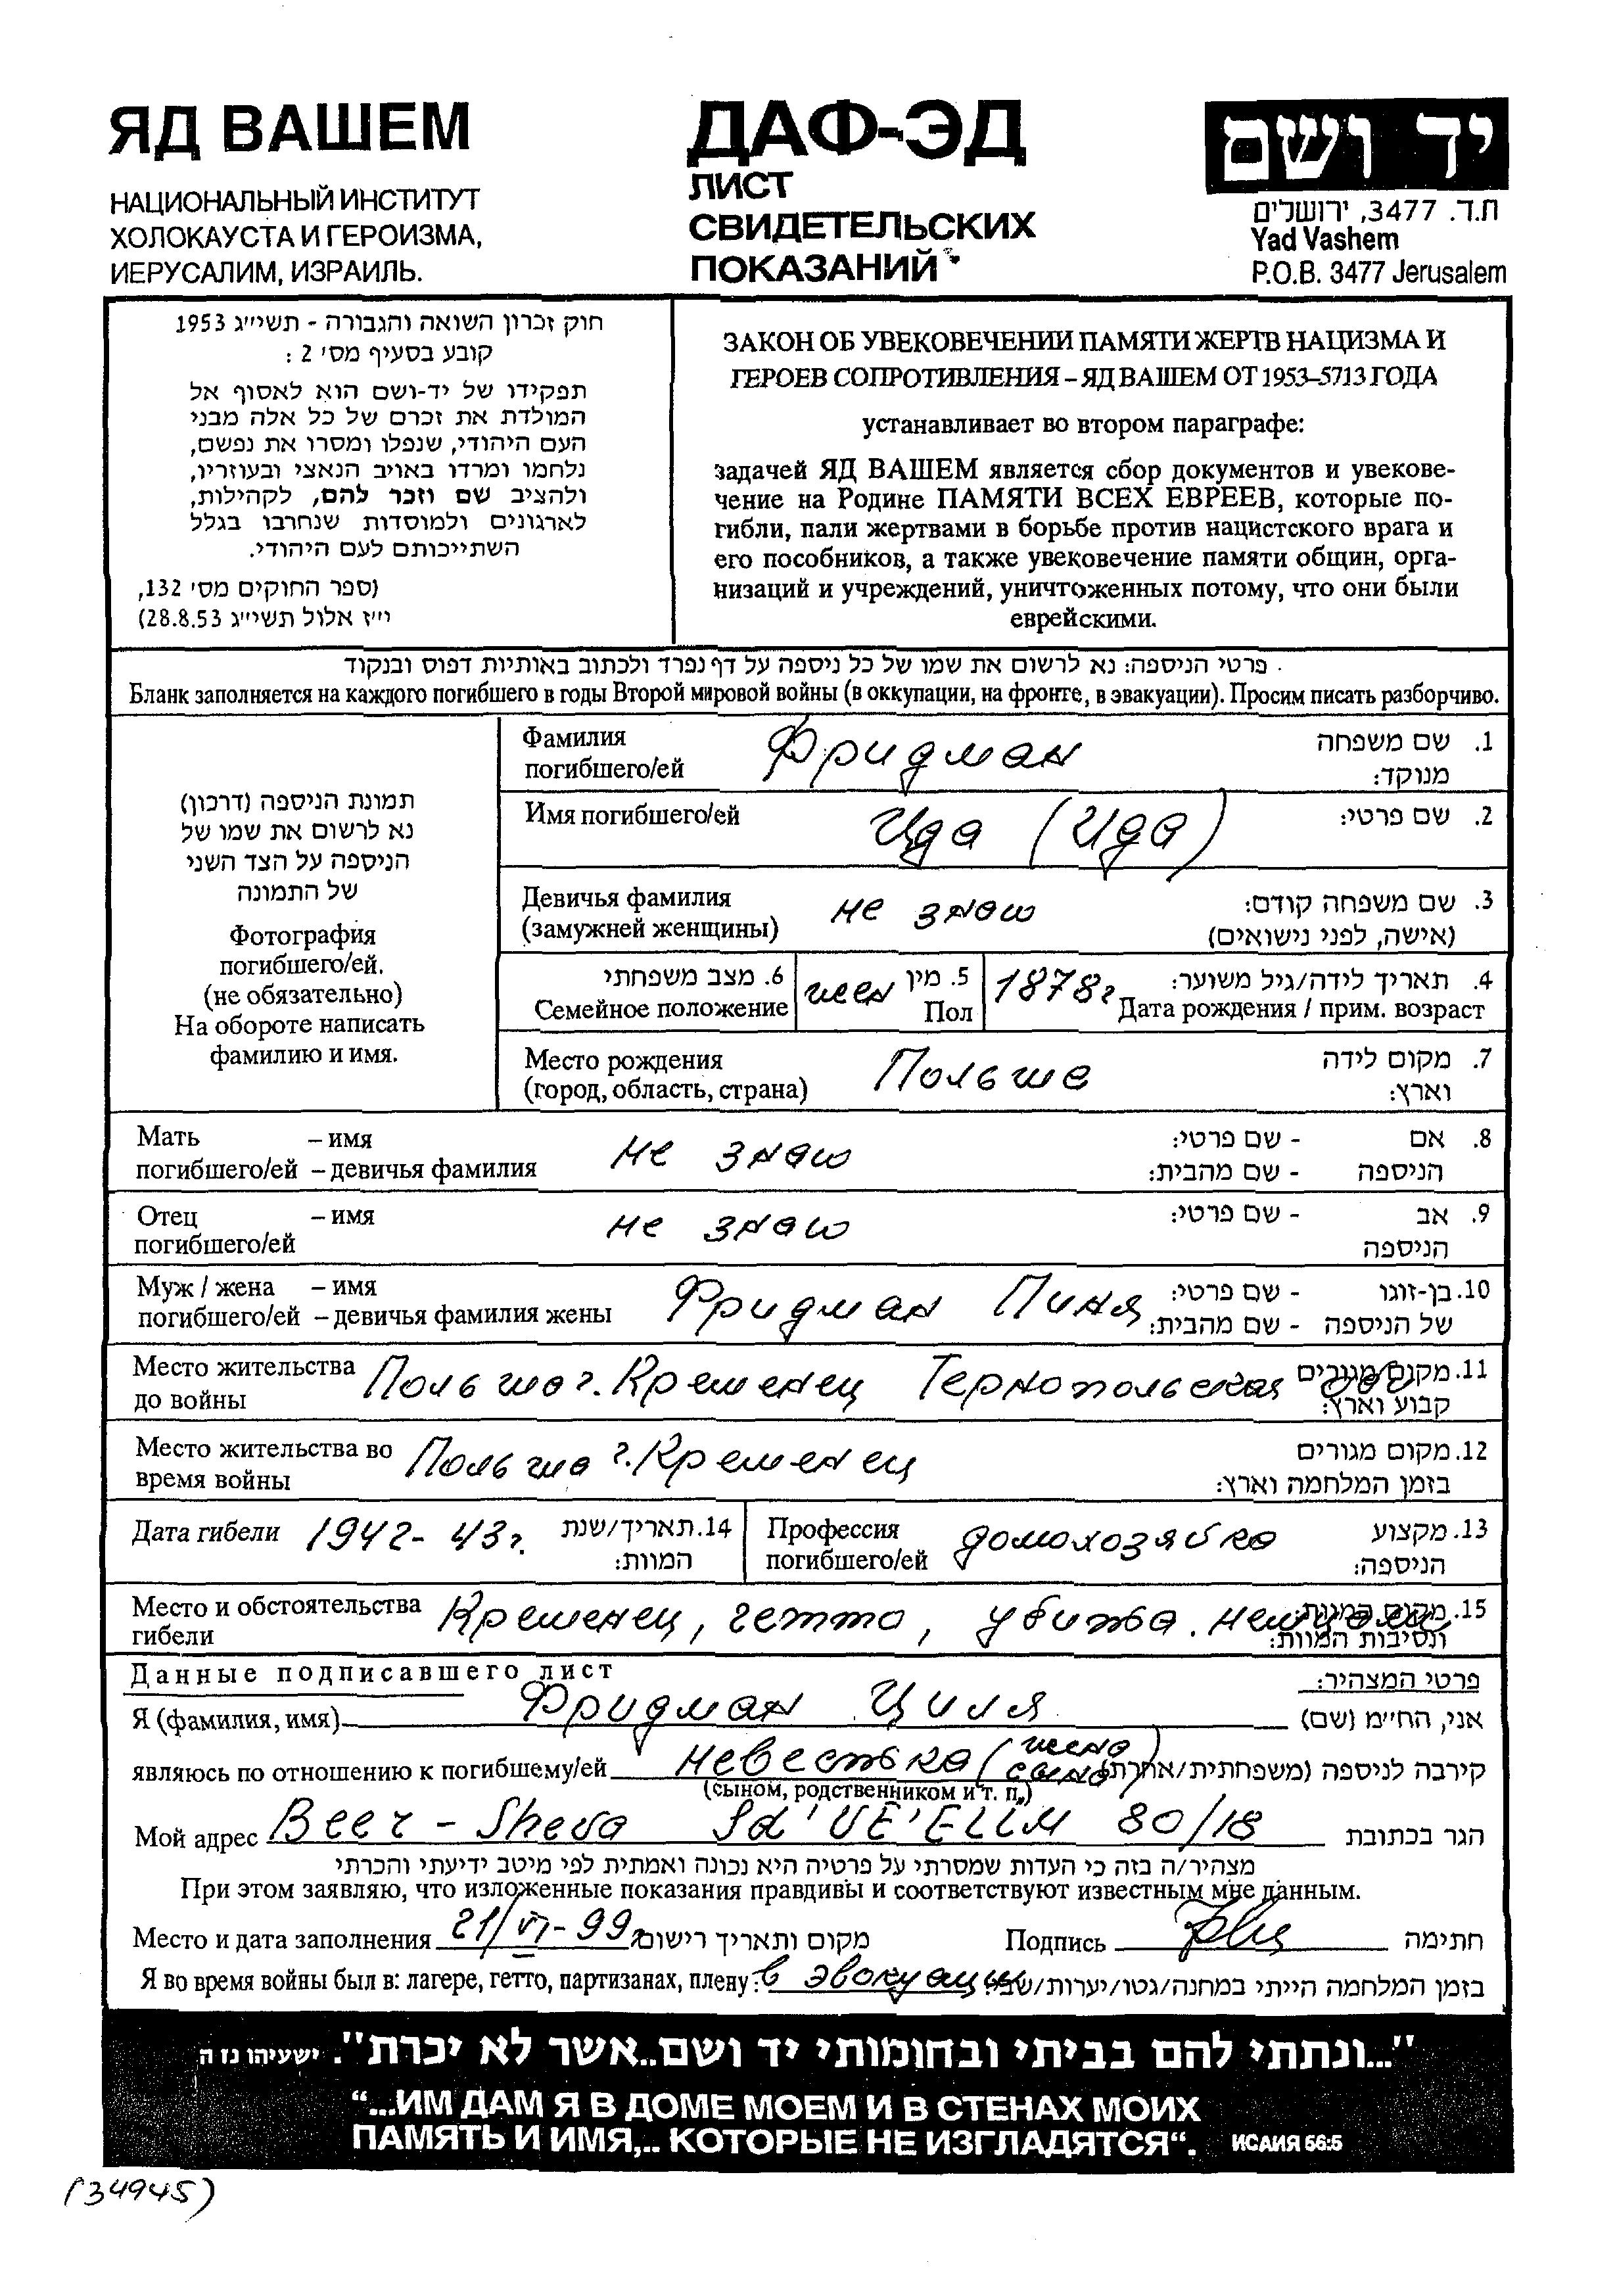 ЯД ВАШЕМ
НАЦИОНАЛЬНЫЙ ИНСТИТУТ
ХОЛОКАУСТА И ГЕРОИЗМА,
ИЕРУСАЛИМ, ИЗРАИЛЬ.
ДАФ-ЭД
ЛИСТ
СВИДЕТЕЛЬСКИХ
ПОКАЗАНИЙ
יד ושם
ת.ד. 3477, ירושלים
Yad Vashem
P.O.B. 3477 Jerusalem
חוק זכרון השואה והגבורה - תשי״ג 1953
קובע בסעיף מס׳ 2 :
תפקידו של יד-ושם הוא לאסוף אל
המולדת את זכרם של כל אלה מבני
העם היהודי, שנפלו ומסרו את נפשם,
נלחמו ומרדו באויב הנאצי ובעוזריו,
ולהציב שם וזכר להם, לקהילות,
לארגונים ולמוסדות שנחרבו בגלל
השתייכותם לעם היהודי.
(ספר החוקים מס׳ 132,
י״ז אלול תשי״ג 28.8.53)
ЗАКОН ОБ УВЕКОВЕЧЕНИИ ПАМЯТИ ЖЕРТВ НАЦИЗМА И
ГЕРОЕВ СОПРОТИВЛЕНИЯ – ЯД ВАШЕМ ОТ 1953–5713 ГОДА
устанавливает во втором параграфе:
задачей ЯД ВАШЕМ является сбор документов и увекове-
чение на Родине ПАМЯТИ ВСЕХ ЕВРЕЕВ, которые по-
гибли, пали жертвами в борьбе против нацистского врага и
его пособников, а также увековечение памяти общин, орга-
низаций и учреждений, уничтоженных потому, что они были
еврейскими.
פרטי הניספה: נא לרשום את שמו של כל ניספה על דף נפרד ולכתוב באותיות דפוס ובנקוד
Бланк заполняется на каждого погибшего в годы Второй мировой войны (в оккупации, на фронте, в эвакуации). Просим писать разборчиво.
תמונת הניספה (דרכון)
נא לרשום את שמו של
הניספה על הצד השני
של התמונה
Фотография
погибшего/ей.
(не обязательно)
На обороте написать
фамилию и имя.
Фамилия погибшего/ей Фридман 1. שם משפחה מנוקד:
Имя погибшего/ей Ида (Ида) 2. שם פרטי:
Девичья фамилия (замужней женщины) не знаю 3. שם משפחה קודם: (אישה, לפני נישואים)
6. מצב משפחתי Семейное положение жен 5. מין Пол 1878г 4. תאריך לידה/גיל משוער: Дата рождения / прим. возраст
Место рождения (город, область, страна) Польша 7. מקום לידה וארץ:
Мать погибшего/ей – имя – девичья фамилия не знаю 8. אם הניספה - שם פרטי: - שם מהבית:
Отец погибшего/ей – имя не знаю 9. אב הניספה - שם פרטי:
Муж / жена погибшего/ей – имя – девичья фамилия жены Фридман Пиня 10. בן-זוגו של הניספה - שם פרטי: - שם מהבית:
Место жительства до войны Польша г. Кременец Тернопольская обл 11. מקום מגורים קבוע וארץ:
Место жительства во время войны Польша г. Кременец 12. מקום מגורים בזמן המלחמה וארץ:
Дата гибели 1942-43г. 14. תאריך/שנת המוות: Профессия погибшего/ей домохозяйка 13. מקצוע הניספה:
Место и обстоятельства гибели Кременец, гетто, убита немцами 15. מקום המוות: ונסיבות המוות:
Данные подписавшего лист פרטי המצהיר:
Я (фамилия, имя) Фридман Циля אני, הח״מ (שם)
являюсь по отношению к погибшему/ей невестка (жена сына) קירבה לניספה (משפחתית/אחרת)
(сыном, родственником и т. п.)
Мой адрес Beer - Sheva Sd'VE'ELIM 80/18 הגר בכתובת
מצהיר/ה בזה כי העדות שמסרתי על פרטיה היא נכונה ואמתית לפי מיטב ידיעתי והכרתי
При этом заявляю, что изложенные показания правдивы и соответствуют известным мне данным.
Место и дата заполнения 21/VI-99г מקום ותאריך רישום Подпись חתימה
Я во время войны был в: лагере, гетто, партизанах, плену: в эвокуации בזמן המלחמה הייתי במחנה/גטו/יערות/שבי:
"...ונתתי להם בביתי ובחומותי יד ושם..אשר לא יכרת". ישעיהו נז ה
“...ИМ ДАМ Я В ДОМЕ МОЕМ И В СТЕНАХ МОИХ
ПАМЯТЬ И ИМЯ,.. КОТОРЫЕ НЕ ИЗГЛАДЯТСЯ“. ИСАИЯ 56:5
(34945)